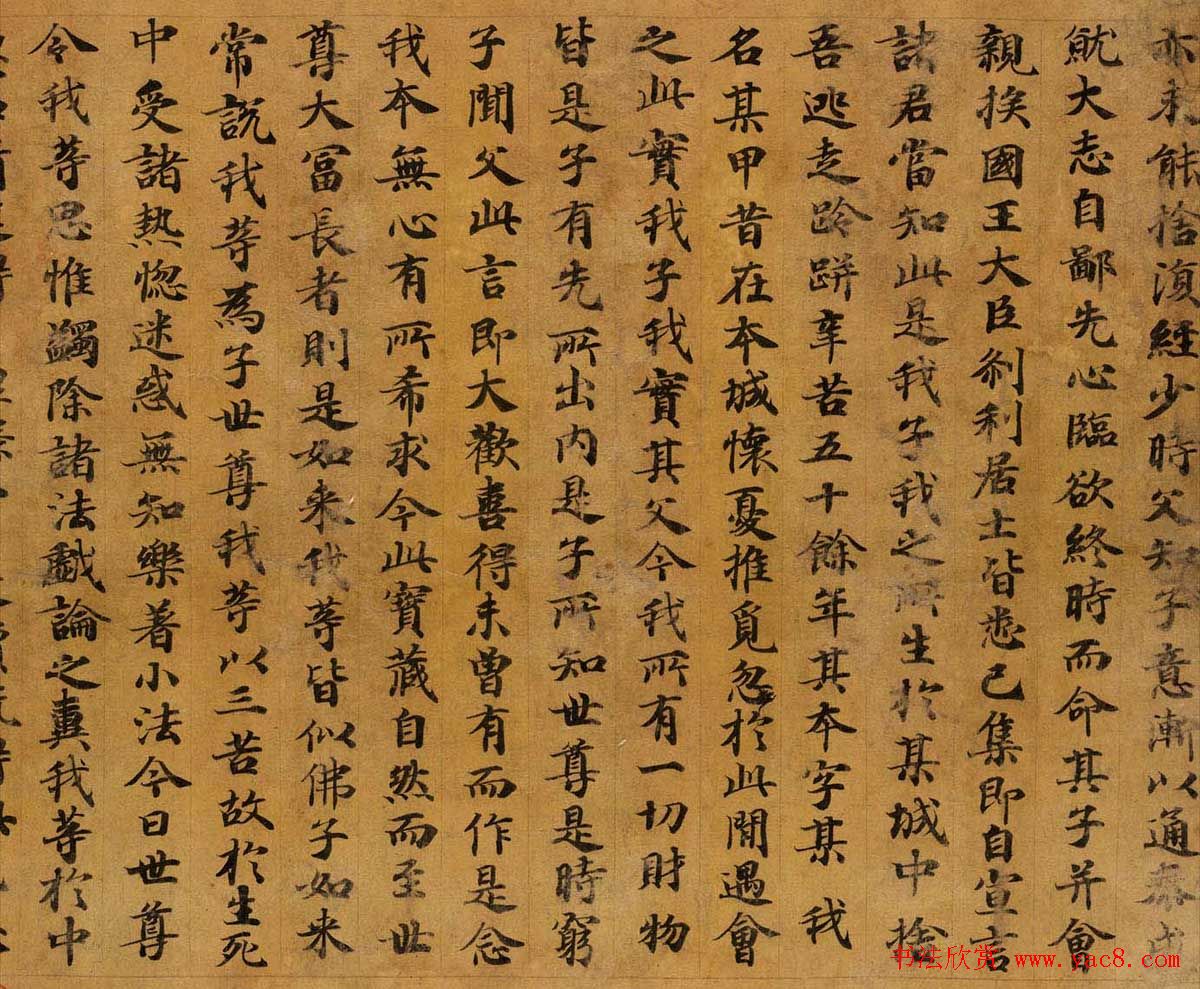 亦未能捨復經少時父知子意漸以通泰成
就大志自鄙先心臨欲終時而命其子并會
親挨國王大臣刹利居士皆悉已集即自宣言
諸君當知此是我子我之所生於某城中捨
吾逃走跉跰辛苦五十餘年其本字某我
名某甲昔在本城懷憂推覓忽於此間遇會
之此實我子我實其父今我所有一切財物
皆是子有先所出内是子所知世尊是時窮
子聞父此言即大歡喜得未曾有而作是念
我本無心有所希求今此寶藏自然而至世
尊大富長者則是如来我等皆似佛子如来
常説我等為子世尊我等以三苦故於生死
中受諸熱惚迷惑無知樂著小法今日世尊
令我等思惟蠲除諸法戲論之糞我等於中
书法欣赏 www.yac8.com